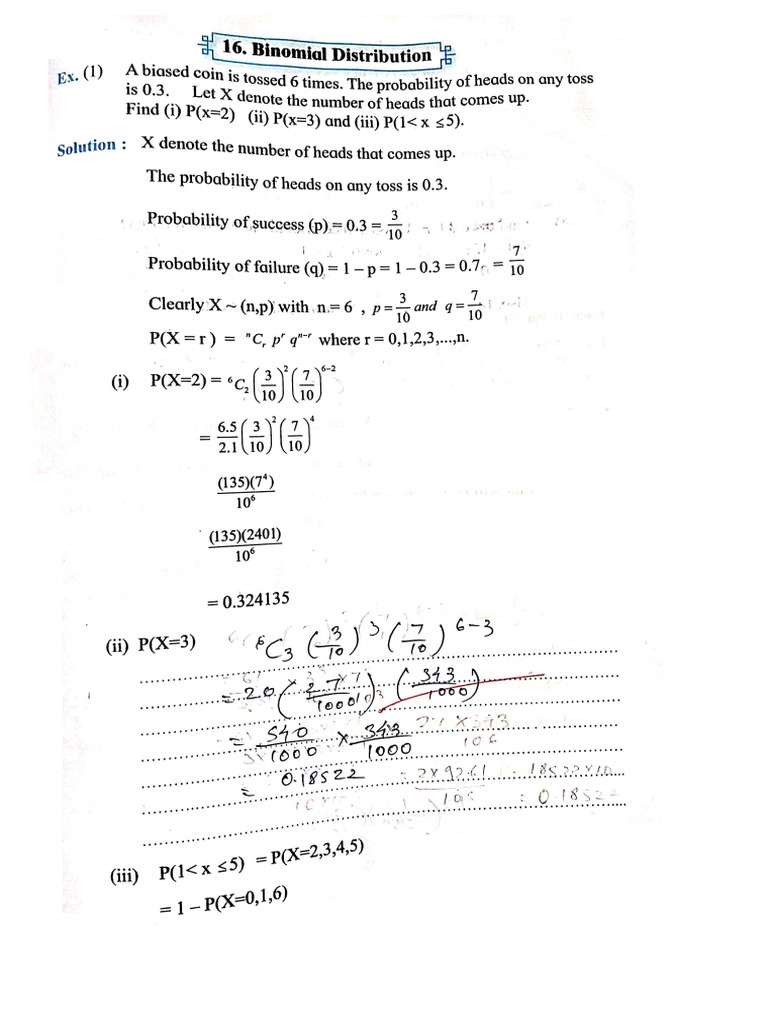 16. Binomial Distribution
Ex. (1) A biased coin is tossed 6 times. The probability of heads on any toss
is 0.3. Let X denote the number of heads that comes up.
Find (i) P(x=2) (ii) P(x=3) and (iii) P(1< x ≤5).
Solution : X denote the number of heads that comes up.
The probability of heads on any toss is 0.3.
Probability of success (p) = 0.3 = 3/10
Probability of failure (q) = 1 – p = 1 – 0.3 = 0.7 = 7/10
Clearly X ~ (n,p) with n = 6 , p = 3/10 and q = 7/10
P(X = r ) = ⁿCᵣ pʳ qⁿ⁻ʳ where r = 0,1,2,3,...,n.
(i) P(X=2) = ⁶C₂ (3/10)² (7/10)⁶⁻²
= 6.5/2.1 (3/10)² (7/10)⁴
(135)(7⁴)/10⁶
(135)(2401)/10⁶
= 0.324135
(ii) P(X=3) ⁶C₃ (3/10)³ (7/10)⁶⁻³
= 20 (27/1000) (343/1000)
= 540/1000 × 343/1000
= 0.18522
(iii) P(1< x ≤5) = P(X=2,3,4,5)
= 1 – P(X=0,1,6)